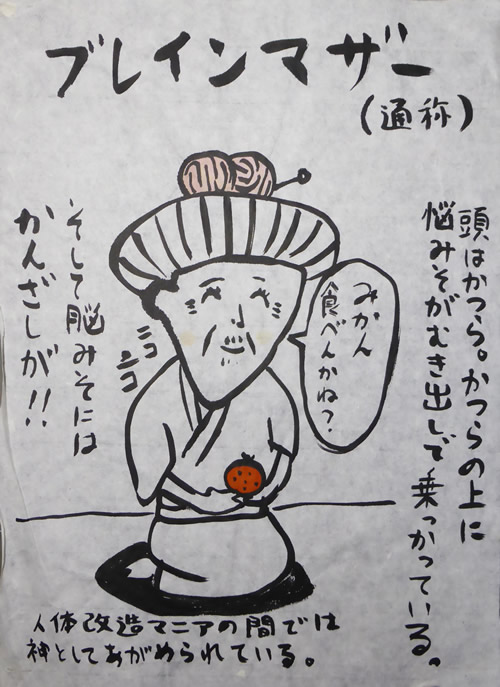 ブレインマザー
(通称)
頭はかつら。かつらの上に
悩みそがむき出しで乗っかっている。
みかん
食べんかね?
ニコ
ニコ
そして脳みそには
かんざしが!!
人体改造マニアの間では
神としてあがめられている。